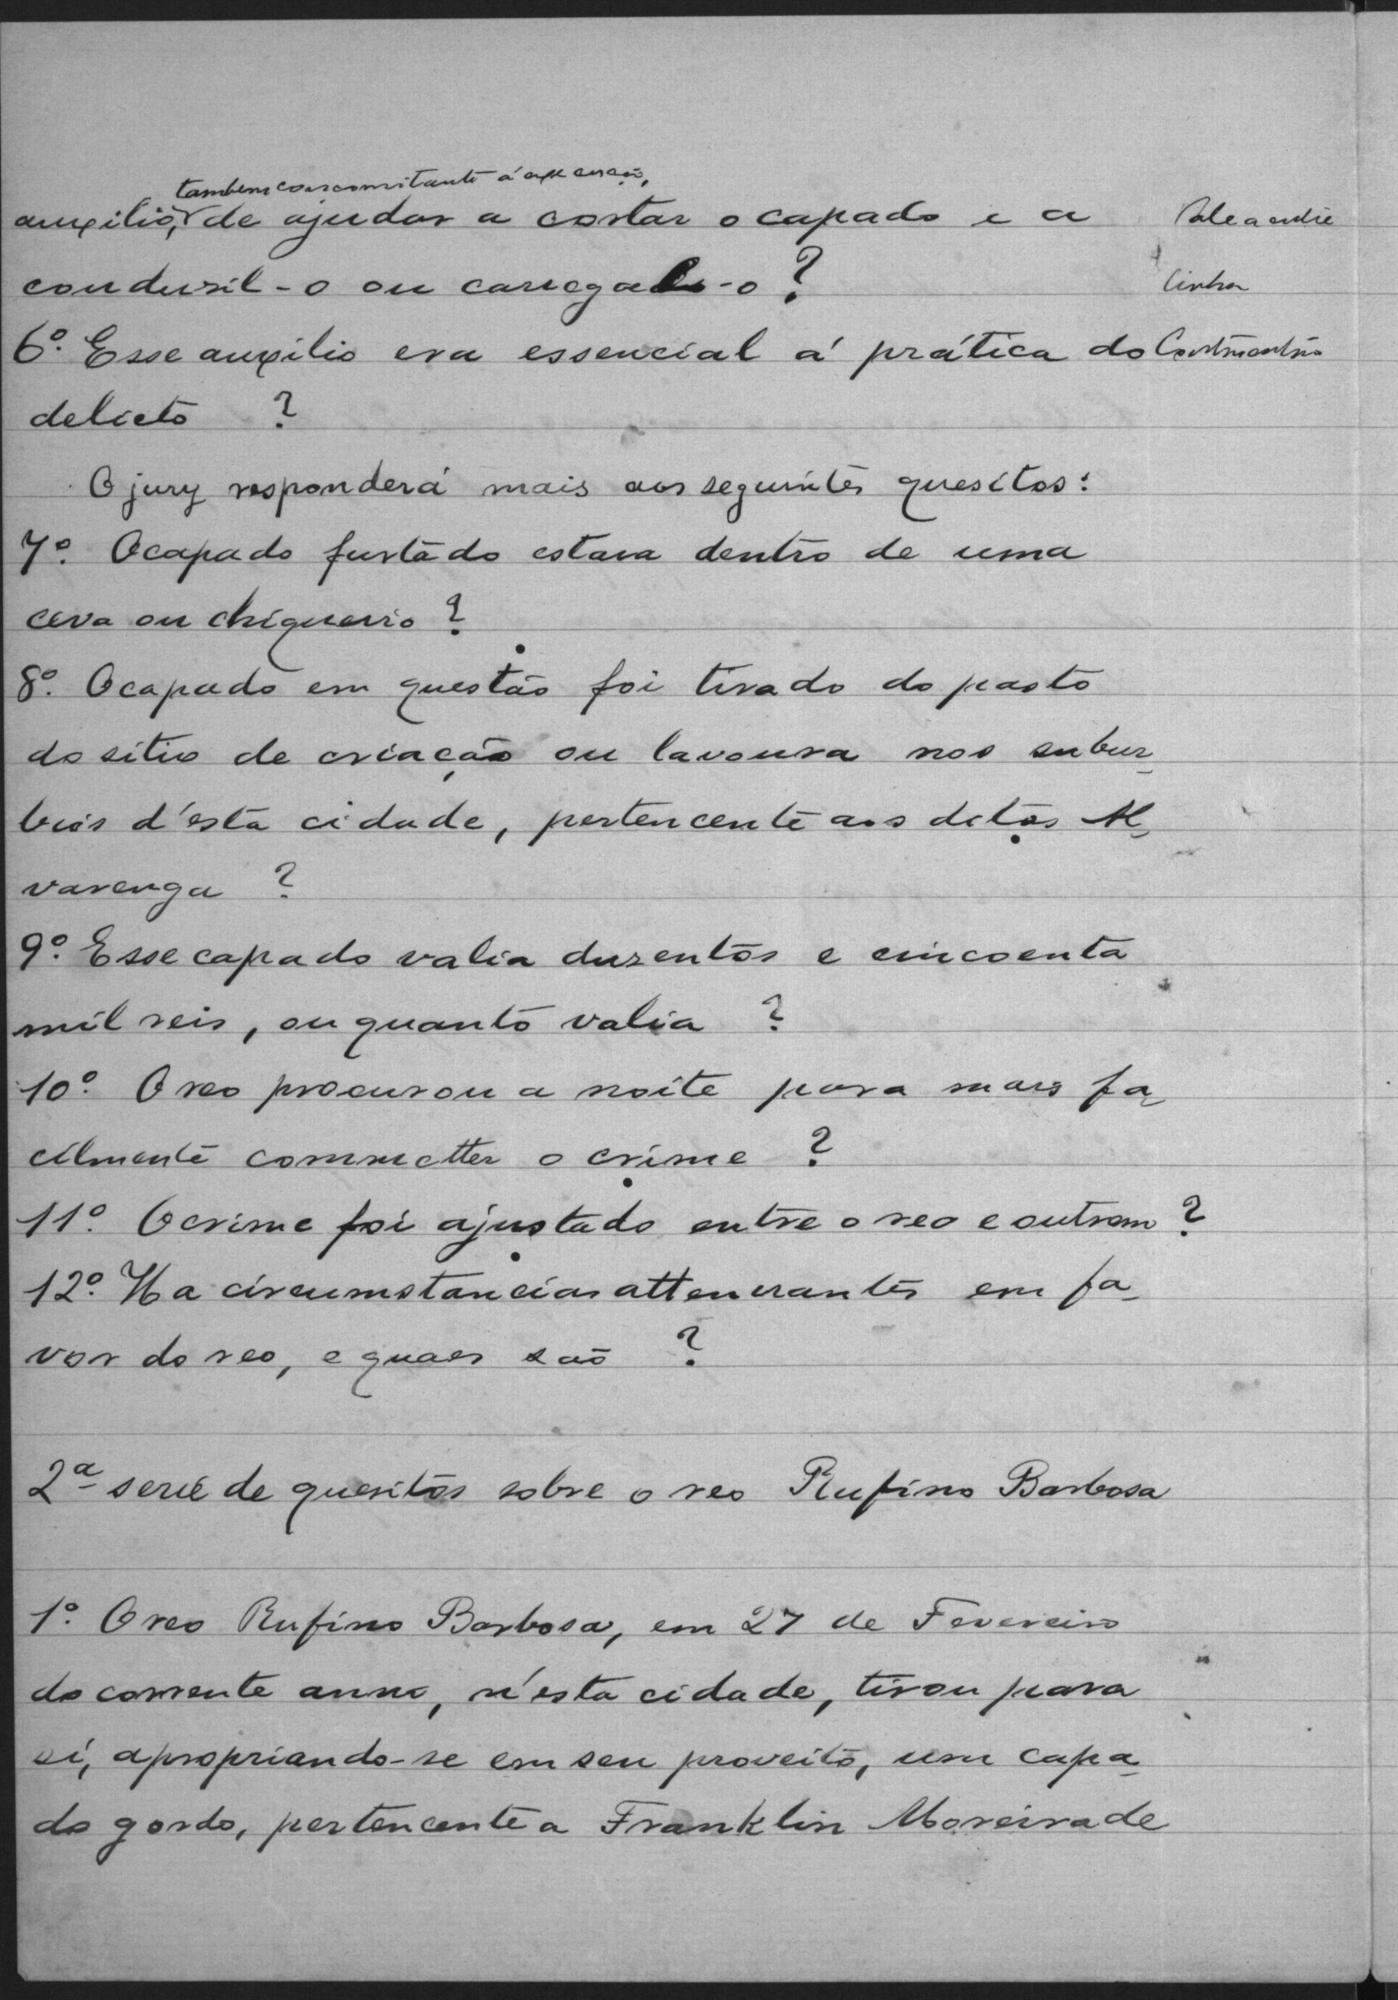 tambem concomitante á execução,
auxilio, de ajudar a cortar o capado e a
Vale a entre
condusil-o ou carregal-o?
linha
6º. Esse auxilio era essencial á prática do
delicto ?
O jury responderá mais aos seguintes quesitos:
7º. O capado furtado estava dentro de uma
ceva ou chiqueiro?
8º. O capado em questão foi tirado do pasto
do sitio de criação ou lavoura nos subur_
bios d'esta cidade, pertencente aos ditos Al_
varenga ?
9º. Esse capado valia duzentos e cincoenta
mil reis, ou quanto valia ?
10º. O reo procurou a noite para mais fa_
cilmente commetter o crime ?
11º. O crime foi ajustado entre o reo e outrem?
12º. Ha circumstancias attenuantes em fa_
vor do reo, e quaes são ?
2ª serie de quesitos sobre o reo Rufino Barbosa
1º. O reo Rufino Barbosa, em 27 de Fevereiro
do corrente anno, n'esta cidade, tirou para
si, apropriando-se em seu proveito, um capa_
do gordo, pertencente a Franklin Moreira de